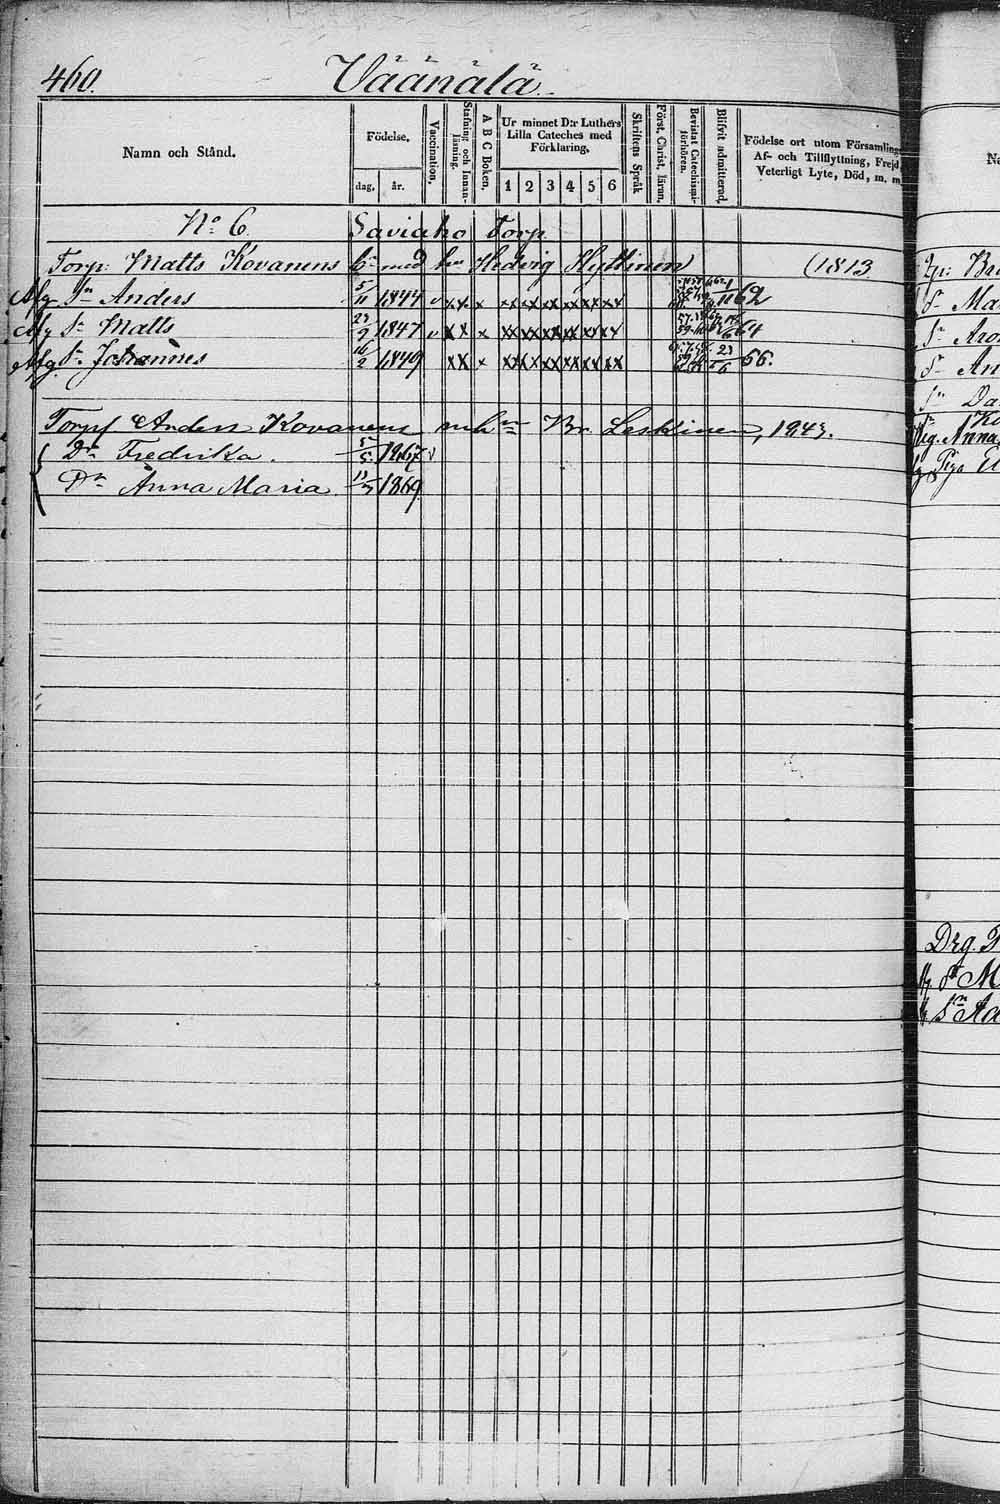 460. Väänälä.
Namn och Stånd.
Födelse.
dag. år.
Vaccination.
Stafning och Innan-läsning.
A B C Boken.
Ur minnet D:r Luthers
Lilla Cateches med
Förklaring,
1 2 3 4 5 6
Skriftens Språk
Först. Christ. läran.
Bevistat Catechismi-förhören.
Blifvit admitterad.
Födelse ort utom Församling
Af- och Tillflyttning, Frejd,
Veterligt Lyte, Död, m. m.
No 6. Saviaho Torp
Torp: Matts Kovanens med Hedvig Hyttinen (1813
Afg Sn Anders 5/11 1844 v x x x x x x x x x 1/11 62
Afg Sn Matts 23/9 1847 v x x x x x x x x x 64
Afg Sn Johannes 16/2 1849 x x x x x x x x x 23/6 66.
Torpf Anders Kovanens m h Br. Leskinen, 1843.
Dr Fredrika. 5/5 1867 v
Dr Anna Maria 1869.
Drg.